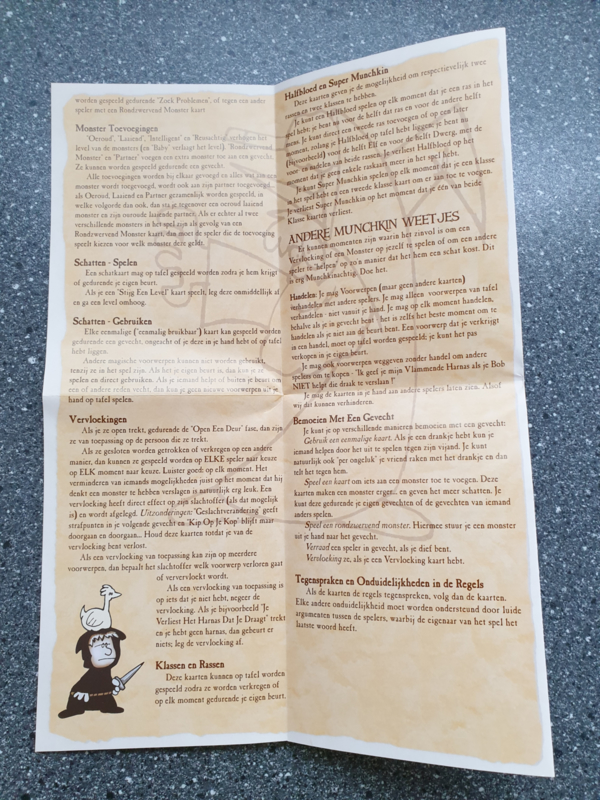 worden gespeeld gedurende 'Zoek Problemen', of tegen een ander
speler met een Rondzwervend Monster kaart.
Monster Toevoegingen
'Oeroud', 'Laaiend', 'Intelligent' en 'Reusachtig' verhogen het
level van de monsters (en 'Baby' verlaagt het level). 'Rondzwervend
Monster' en 'Partner' voegen een extra monster toe aan een gevecht.
Ze kunnen worden gespeeld gedurende elk gevecht.
Alle toevoegingen worden bij elkaar gevoegd en alles wat aan een
monster wordt toegevoegd, wordt ook aan zijn partner toegevoegd
als Oeroud, Laaiend en Partner gezamenlijk worden gespeeld, in
welke volgorde dan ook, dan sta je tegenover een oeroud laaiend
monster en zijn oeroude laaiende partner. Als er echter al twee
verschillende monsters in het spel zijn als gevolg van een
Rondzwervend Monster kaart, dan moet de speler die de toevoeging
speelt kiezen voor welk monster deze geldt.
Schatten - Spelen
Een schatkaart mag op tafel gespeeld worden zodra je hem krijgt
of gedurende je eigen beurt.
Als je een 'Stijg Een Level' kaart speelt, leg deze onmiddellijk af
en ga een level omhoog.
Schatten - Gebruiken
Elke eenmalige ('eenmalig bruikbaar') kaart kan gespeeld worden
gedurende een gevecht, ongeacht of je deze in je hand hebt of op tafel
hebt liggen.
Andere magische voorwerpen kunnen niet worden gebruikt,
tenzij ze in het spel zijn. Als het je eigen beurt is, dan kan je ze
spelen en direct gebruiken. Als je iemand helpt of buiten je beurt om
een of andere reden vecht, dan kan je geen nieuwe voorwerpen uit je
hand op tafel spelen.
Vervloekingen
Als je ze open trekt, gedurende de 'Open Een Deur' fase, dan zijn
ze van toepassing op de persoon die ze trekt.
Als ze gesloten worden getrokken of verkregen op een andere
manier, dan kunnen ze gespeeld worden op ELKE speler naar keuze
op ELK moment naar keuze. Luister goed: op elk moment. Het
verminderen van iemands mogelijkheden juist op het moment dat hij
denkt een monster te hebben verslagen is natuurlijk erg leuk. Een
vervloeking heeft direct effect op zijn slachtoffer (als dat mogelijk
is) en wordt afgelegd. Uitzonderingen: 'Geslachtverandering' geeft
strafpunten in je volgende gevecht en 'Kip Op Je Kop' blijft maar
doorgaan en doorgaan... Houd deze kaarten totdat je van de
vervloeking bent verlost.
Als een vervloeking van toepassing kan zijn op meerdere
voorwerpen, dan bepaalt het slachtoffer welk voorwerp verloren gaat
of vervloekt wordt.
Als een vervloeking van toepassing is
op iets dat je niet hebt, negeer de
vervloeking. Als je bijvoorbeeld 'Je
Verliest Het Harnas Dat Je Draagt' trekt
en je hebt geen harnas, dan gebeurt er
niets; leg de vervloeking af.
Klassen en Rassen
Deze kaarten kunnen op tafel worden
gespeeld zodra ze worden verkregen of
op elk moment gedurende je eigen beurt.
Halfbloed en Super Munchkin
Deze kaarten geven je de mogelijkheid om respectievelijk twee
rassen en twee klassen te hebben.
Je kunt een Halfbloed spelen op elk moment dat je een ras in het
spel hebt; je bent nu voor de helft dat ras en voor de andere helft
mens. Je kunt direct een tweede ras toevoegen of op een later
moment, zolang je Halfbloed op tafel hebt liggen; je bent nu
(bijvoorbeeld) voor de helft Elf en voor de helft Dwerg, met de
voor- en nadelen van beide rassen. Je verliest Halfbloed op het
moment dat je geen enkele raskaart meer in het spel hebt.
Je kunt Super Munchkin spelen op elk moment dat je een klasse
in het spel hebt en een tweede klasse kaart om er aan toe te voegen.
Je verliest Super Munchkin op het moment dat je één van beide
Klasse kaarten verliest.
ANDERE MUNCHKIN WEETJES
Er kunnen momenten zijn waarin het zinvol is om een
Vervloeking of een Monster op jezelf te spelen of om een andere
speler te 'helpen' op zo'n manier dat het hem een schat kost. Dit
is erg Munchkinachtig. Doe het.
Handelen: Je mag Voorwerpen (maar geen andere kaarten)
verhandelen met andere spelers. Je mag alleen voorwerpen van tafel
verhandelen - niet vanuit je hand. Je mag op elk moment handelen,
behalve als je in gevecht bent - het is zelfs het beste moment om te
handelen als je niet aan de beurt bent. Een voorwerp dat je verkrijgt
in een handel, moet op tafel worden gespeeld; je kunt het pas
verkopen in je eigen beurt.
Je mag ook voorwerpen weggeven zonder handel om andere
spelers om te kopen - 'Ik geef je mijn Vlammende Harnas als je Bob
NIET helpt die draak te verslaan !'
Je mag de kaarten in je hand aan andere spelers laten zien. Alsof
wij dit kunnen verhinderen.
Bemoeien Met Een Gevecht
Je kunt je op verschillende manieren bemoeien met een gevecht:
Gebruik een eenmalige kaart. Als je een drankje hebt kun je
iemand helpen door het uit te spelen tegen zijn vijand. Je kunt
natuurlijk ook 'per ongeluk' je vriend raken met het drankje en dan
telt het tegen hem.
Speel een kaart om iets aan een monster toe te voegen. Deze
kaarten maken een monster erger... en geven het meer schatten. Je
kunt deze gedurende je eigen gevechten of de gevechten van iemand
anders spelen.
Speel een rondzwervend monster. Hiermee stuur je een monster
uit je hand naar het gevecht.
Verraad een speler in gevecht, als je dief bent.
Vervloeking ze, als je een Vervloeking kaart hebt.
Tegenspraken en Onduidelijkheden in de Regels
Als de kaarten de regels tegenspreken, volg dan de kaarten.
Elke andere onduidelijkheid moet worden ondersteund door luide
argumenten tussen de spelers, waarbij de eigenaar van het spel het
laatste woord heeft.